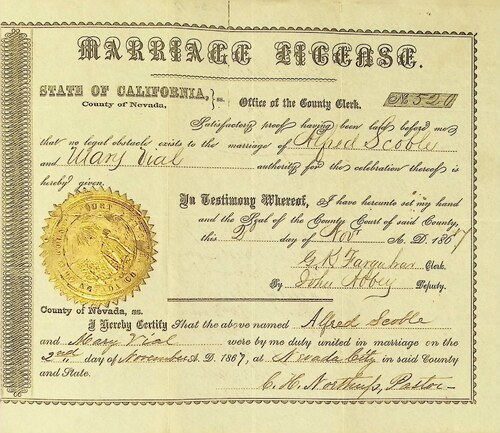 MARRIAGE LICENSE.
STATE OF CALIFORNIA, } ss.
County of Nevada,
Office of the County Clerk.
No 520
Satisfactory proof having been laid before me
that no legal obstacle exists to the marriage of Alfred Scoble
and Mary Vial authority for the celebration thereof is
hereby given.
In Testimony Whereof, I have hereunto set my hand
and the Seal of the County Court of said County,
this 2 day of Nov A. D. 1867
G. K. Farquhar Clerk.
By John Abbey Deputy.
County of Nevada, ss.
I Hereby Certify That the above named Alfred Scoble
and Mary Vial were by me duly united in marriage on the
2nd day of November A. D. 1867, at Nevada City in said County
and State.
C. H. Northup, Pastor